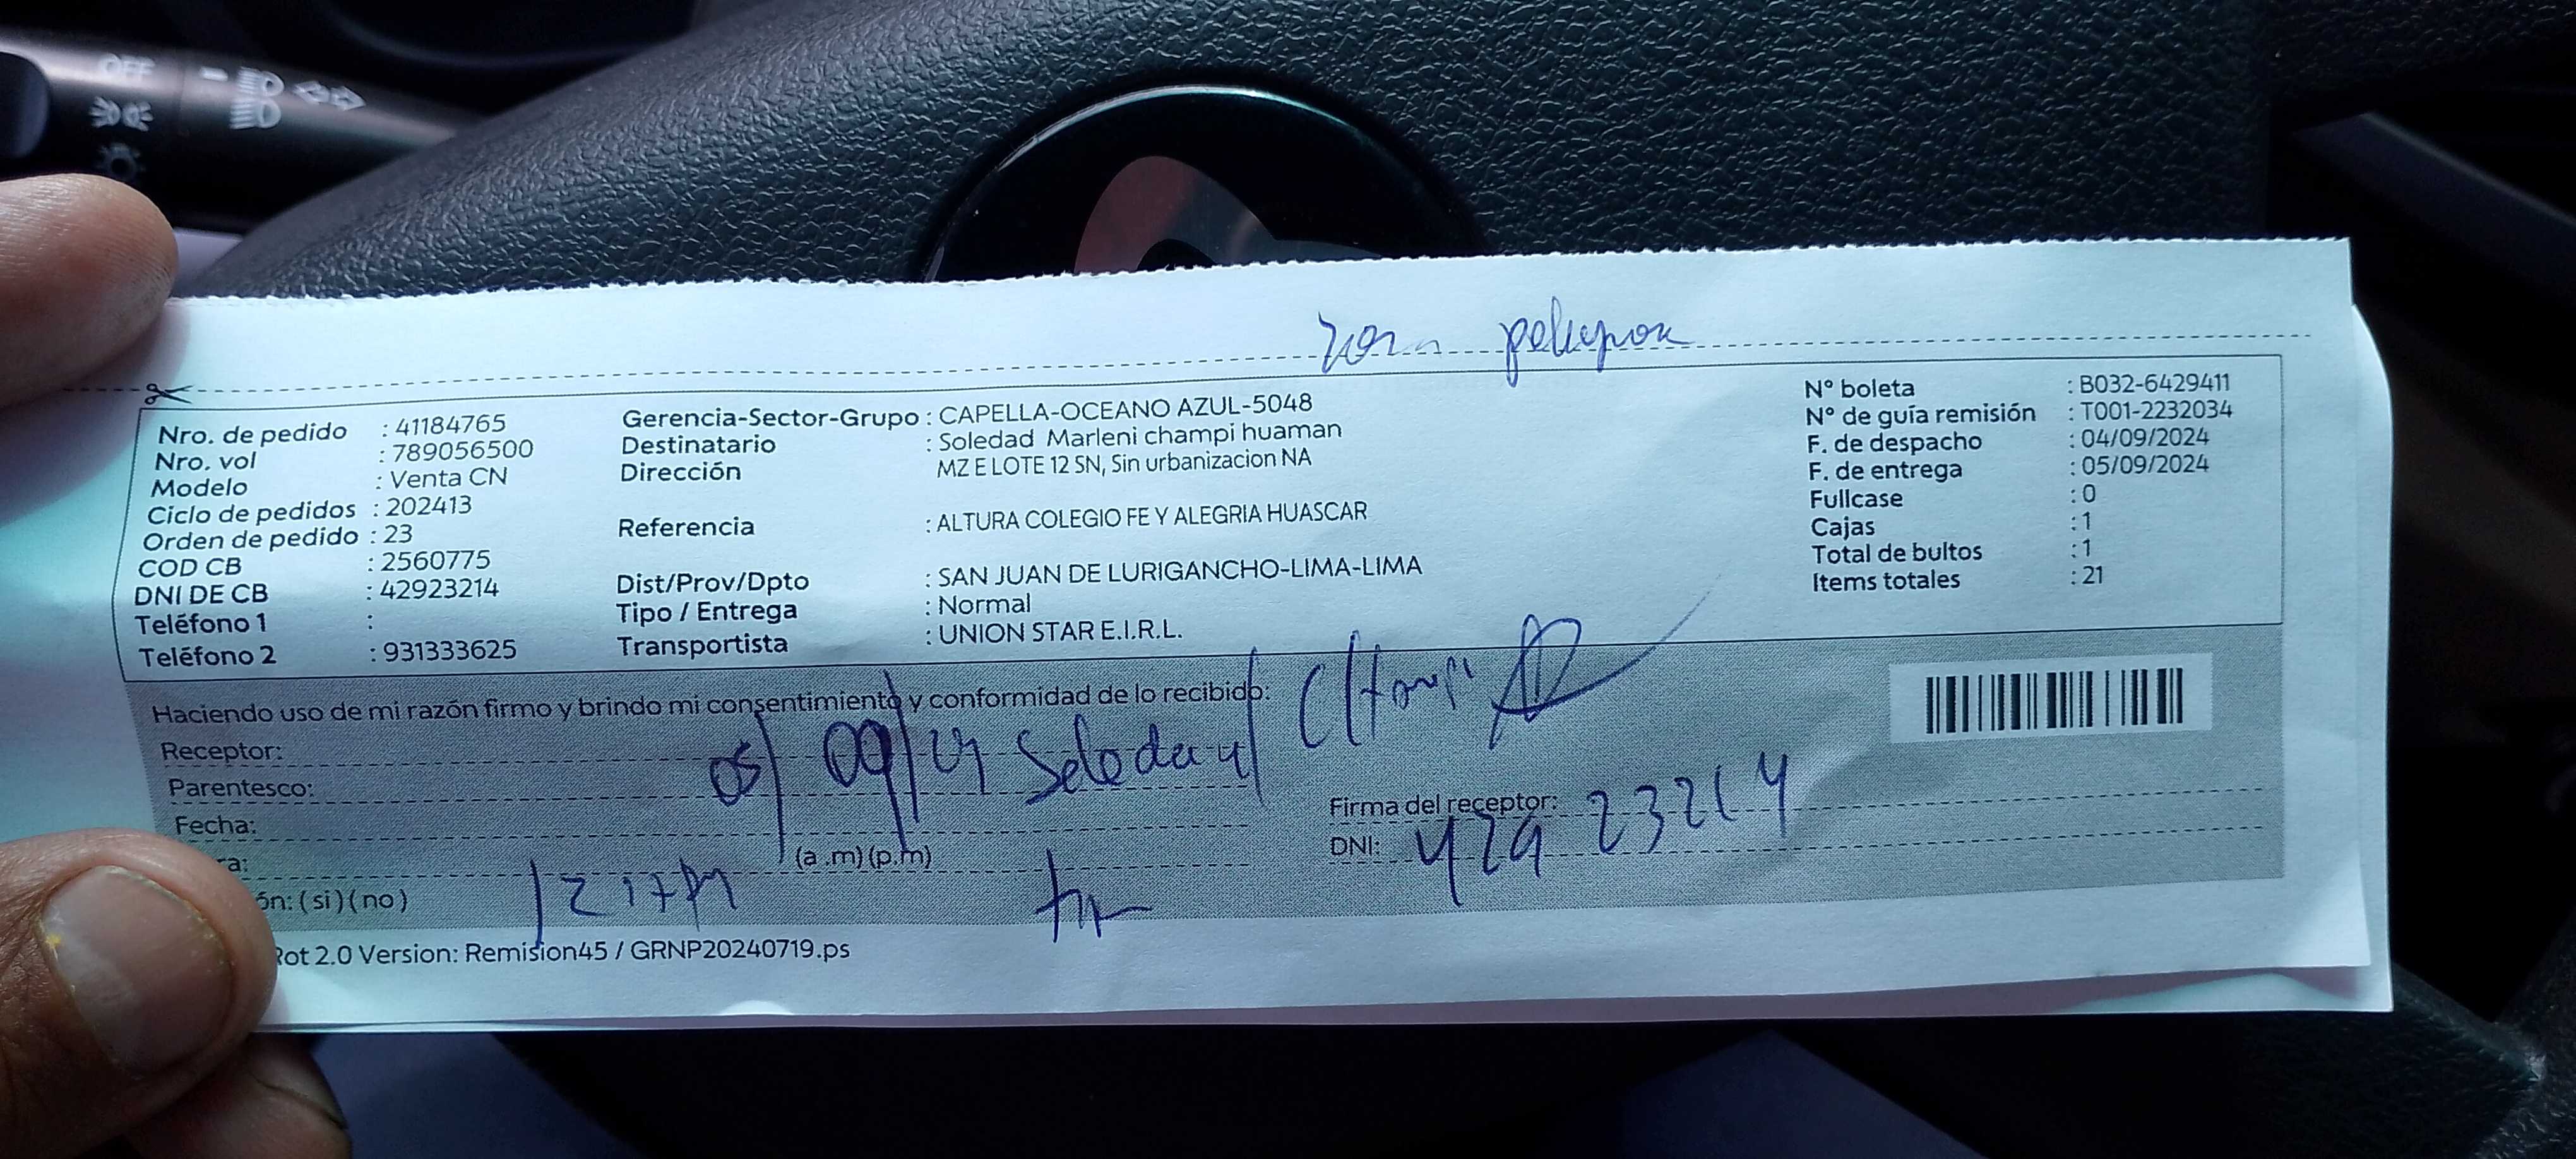 OFF
zona peligrosa
Nro. de pedido : 41184765
Nro. vol : 789056500
Modelo : Venta CN
Ciclo de pedidos : 202413
Orden de pedido : 23
COD CB : 2560775
DNI DE CB : 42923214
Teléfono 1 :
Teléfono 2 : 931333625
Gerencia-Sector-Grupo : CAPELLA-OCEANO AZUL-5048
Destinatario : Soledad Marleni champi huaman
Dirección MZ E LOTE 12 SN, Sin urbanizacion NA
Referencia : ALTURA COLEGIO FE Y ALEGRIA HUASCAR
Dist/Prov/Dpto : SAN JUAN DE LURIGANCHO-LIMA-LIMA
Tipo / Entrega : Normal
Transportista : UNION STAR E.I.R.L.
N° boleta : B032-6429411
N° de guía remisión : T001-2232034
F. de despacho : 04/09/2024
F. de entrega : 05/09/2024
Fullcase : 0
Cajas : 1
Total de bultos : 1
Items totales : 21
Haciendo uso de mi razón firmo y brindo mi consentimiento y conformidad de lo recibido:
Receptor:
Parentesco:
05/09/24 Soledad Champi
Fecha:
ra: (a .m) (p.m)
ón: ( si ) ( no )
Firma del receptor:
DNI: 42923214
Rot 2.0 Version: Remision45 / GRNP20240719.ps